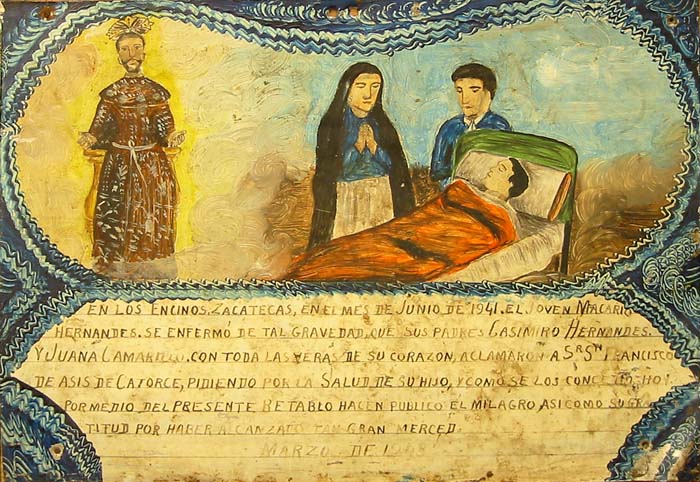 EN LOS ENCINOS, ZACATECAS, EN EL MES DE JUNIO DE 1941. EL JOVEN MACARIO
HERNANDES. SE ENFERMÓ DE TAL GRAVEDAD, QUE SUS PADRES CASIMIRO HERNANDES.
Y JUANA CAMARILLO. CON TODA LAS VERAS DE SU CORAZON, ACLAMARON A SR. SN FRANCISCO
DE ASIS DE CATORCE, PIDIENDO POR LA SALUD DE SU HIJO, Y COMO SE LOS CONCEDIO. HOY
POR MEDIO DEL PRESENTE RETABLO HACEN PUBLICO EL MILAGRO, ASI COMO SU GRA
TITUD POR HABER ALCANZADO TAN GRAN MERCED.
MARZO DE